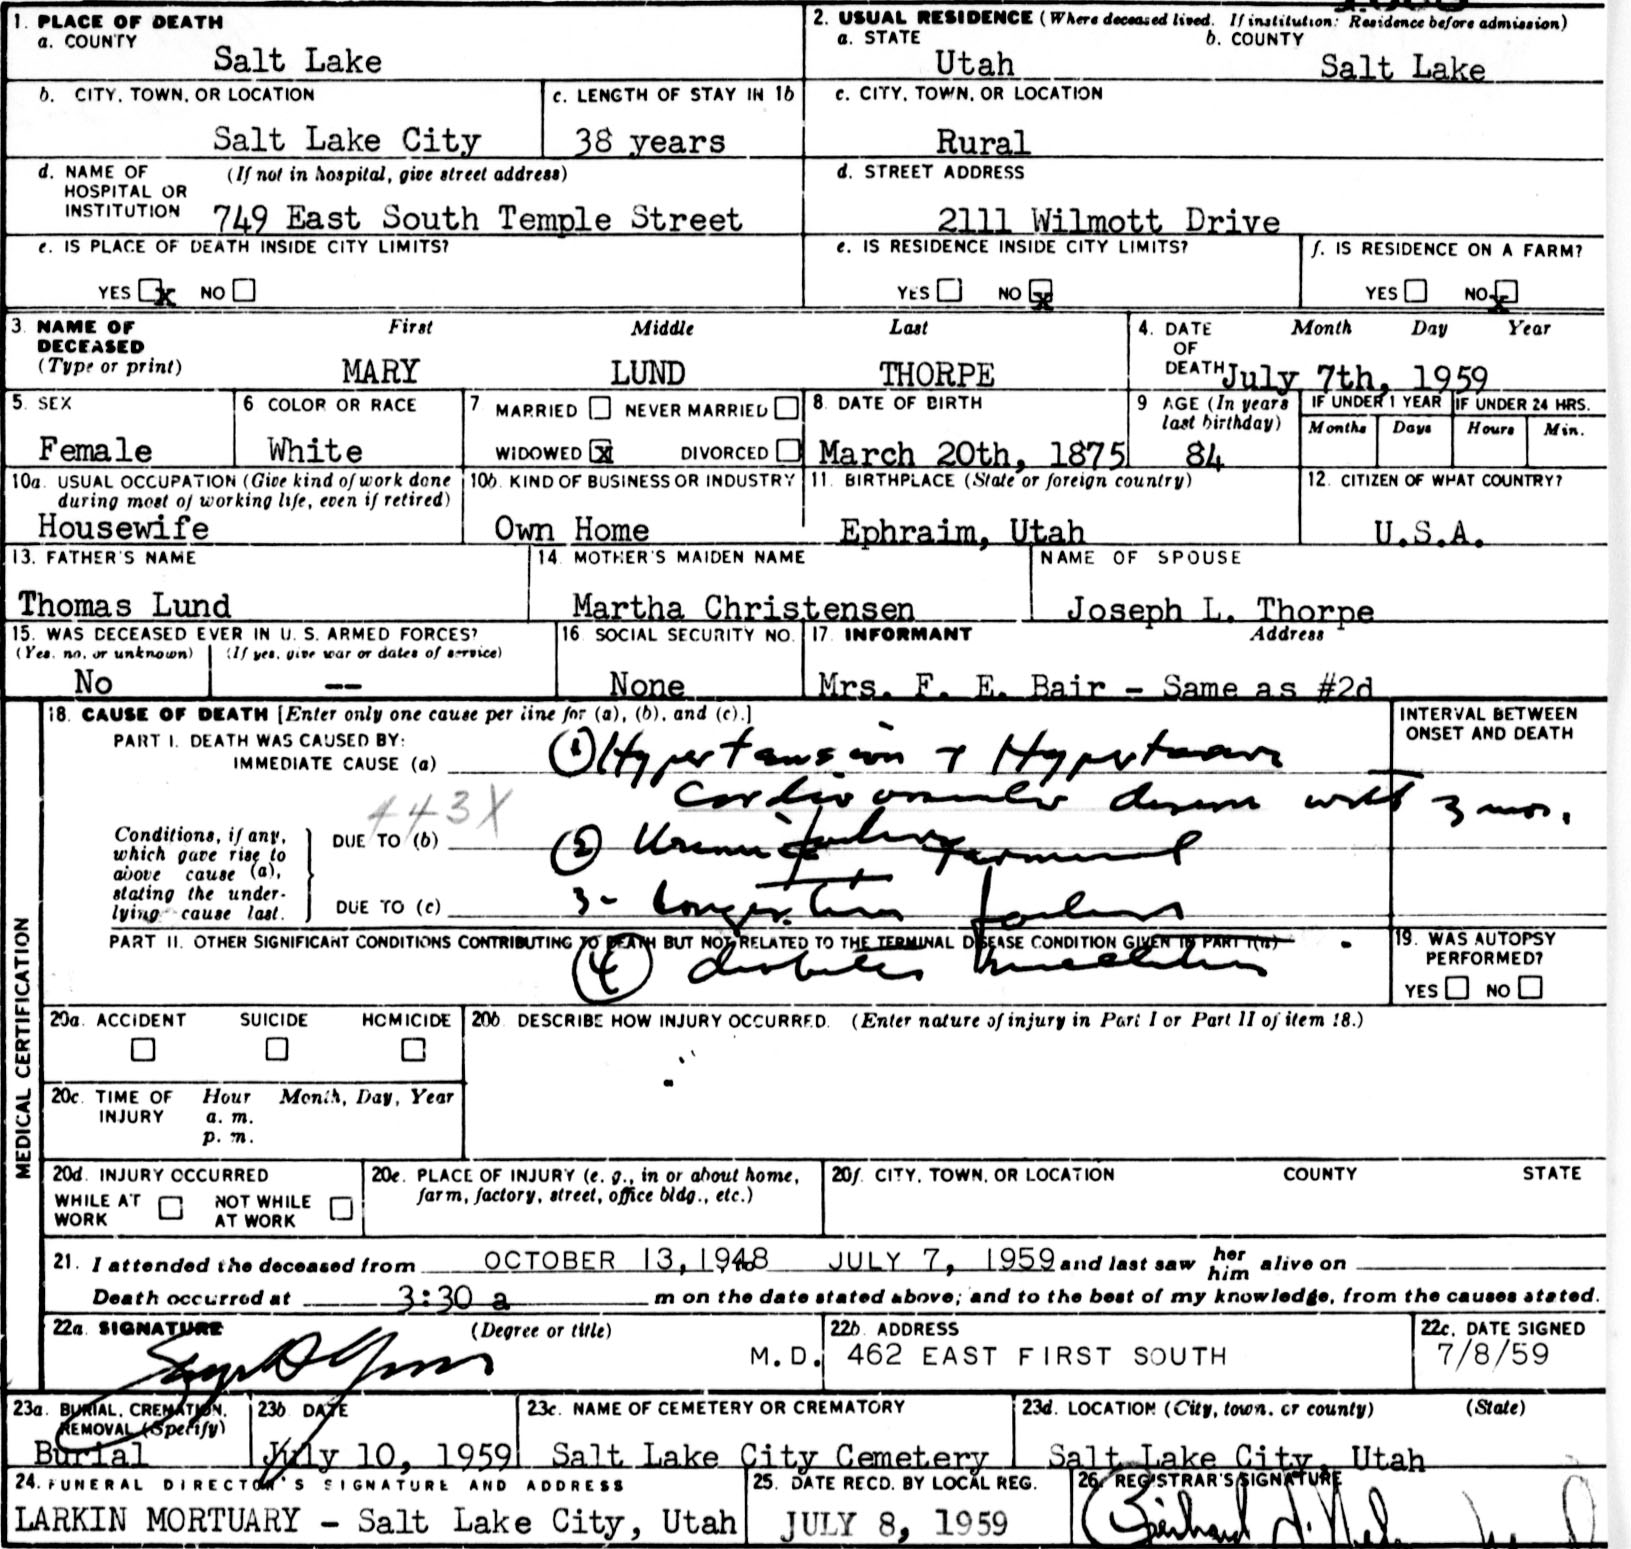 1. PLACE OF DEATH
a. COUNTY
Salt Lake
2. USUAL RESIDENCE (Where deceased lived. If institution: Residence before admission)
a. STATE b. COUNTY
Utah Salt Lake
b. CITY, TOWN, OR LOCATION
Salt Lake City
c. LENGTH OF STAY IN 1b
38 years
c. CITY, TOWN, OR LOCATION
Rural
d. NAME OF HOSPITAL OR INSTITUTION (If not in hospital, give street address)
749 East South Temple Street
d. STREET ADDRESS
2111 Wilmott Drive
e. IS PLACE OF DEATH INSIDE CITY LIMITS?
YES x NO
e. IS RESIDENCE INSIDE CITY LIMITS?
YES NO x
f. IS RESIDENCE ON A FARM?
YES NO x
3. NAME OF DECEASED (Type or print)
First Middle Last
MARY LUND THORPE
4. DATE OF DEATH
Month Day Year
July 7th, 1959
5. SEX
Female
6 COLOR OR RACE
White
7 MARRIED NEVER MARRIED
WIDOWED x DIVORCED
8. DATE OF BIRTH
March 20th, 1875
9 AGE (In years last birthday)
84
IF UNDER 1 YEAR IF UNDER 24 HRS.
Months Days Hours Min.
10a. USUAL OCCUPATION (Give kind of work done during most of working life, even if retired)
Housewife
10b. KIND OF BUSINESS OR INDUSTRY
Own Home
11. BIRTHPLACE (State or foreign country)
Ephraim, Utah
12. CITIZEN OF WHAT COUNTRY?
U.S.A.
13. FATHER'S NAME
Thomas Lund
14. MOTHER'S MAIDEN NAME
Martha Christensen
NAME OF SPOUSE
Joseph L. Thorpe
15. WAS DECEASED EVER IN U. S. ARMED FORCES?
(Yes, no, or unknown) (If yes, give war or dates of service)
No --
16. SOCIAL SECURITY NO.
None
17. INFORMANT Address
Mrs. F. E. Bair - Same as #2d
MEDICAL CERTIFICATION
18. CAUSE OF DEATH [Enter only one cause per line for (a), (b), and (c).]
INTERVAL BETWEEN ONSET AND DEATH
PART I. DEATH WAS CAUSED BY:
IMMEDIATE CAUSE (a) 1 Hypertension +
3 mos.
443X
Conditions, if any, which gave rise to above cause (a), stating the underlying cause last.
DUE TO (b) 2 terminal
DUE TO (c) 3- failure
PART II. OTHER SIGNIFICANT CONDITIONS CONTRIBUTING TO DEATH BUT NOT RELATED TO THE TERMINAL DISEASE CONDITION GIVEN IN PART I(a)
4 diabetes mellitus
19. WAS AUTOPSY PERFORMED?
YES NO
20a. ACCIDENT SUICIDE HOMICIDE
20b. DESCRIBE HOW INJURY OCCURRED. (Enter nature of injury in Part I or Part II of item 18.)
20c. TIME OF INJURY Hour Month, Day, Year
a. m.
p. m.
20d. INJURY OCCURRED
WHILE AT WORK NOT WHILE AT WORK
20e. PLACE OF INJURY (e. g., in or about home, farm, factory, street, office bldg., etc.)
20f. CITY, TOWN, OR LOCATION COUNTY STATE
21. I attended the deceased from OCTOBER 13, 1948 JULY 7, 1959 and last saw her him alive on
Death occurred at 3:30 a m on the date stated above; and to the best of my knowledge, from the causes stated.
22a. SIGNATURE (Degree or title)
M.D.
22b. ADDRESS
462 EAST FIRST SOUTH
22c. DATE SIGNED
7/8/59
23a. BURIAL, CREMATION, REMOVAL (Specify)
Burial
23b DATE
July 10, 1959
23c. NAME OF CEMETERY OR CREMATORY
Salt Lake City Cemetery
23d. LOCATION (City, town, or county) (State)
Salt Lake City, Utah
24. FUNERAL DIRECTOR'S SIGNATURE AND ADDRESS
LARKIN MORTUARY - Salt Lake City, Utah
25. DATE RECD. BY LOCAL REG.
JULY 8, 1959
26. REGISTRAR'S SIGNATURE